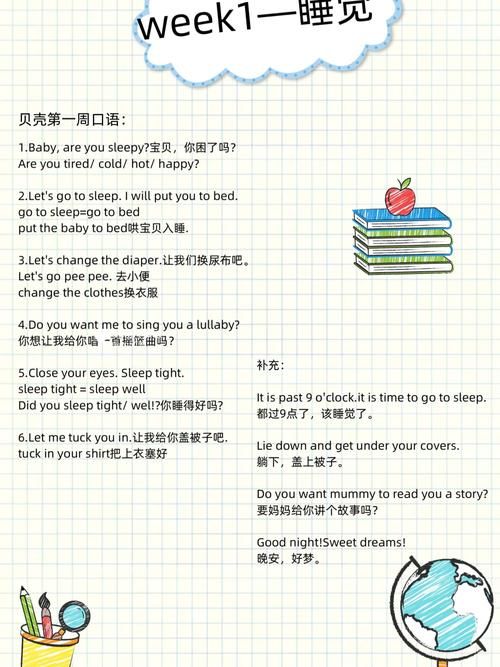 week1—睡觉
贝壳第一周口语：
1.Baby, are you sleepy?宝贝，你困了吗?
Are you tired/ cold/ hot/ happy?
2.Let's go to sleep. I will put you to bed.
go to sleep=go to bed
put the baby to bed哄宝贝入睡.
3.Let's change the diaper.让我们换尿布吧。
Let's go pee pee. 去小便
change the clothes换衣服
4.Do you want me to sing you a lullaby?
你想让我给你唱 摇篮曲吗?
5.Close your eyes. Sleep tight.
sleep tight = sleep well
Did you sleep tight/ wel!?你睡得好吗?
6.Let me tuck you in.让我给你盖被子吧.
tuck in your shirt把上衣塞好
补充：
It is past 9 o'clock.it is time to go to sleep.
都过9点了，该睡觉了。
Lie down and get under your covers.
躺下，盖上被子。
Do you want mummy to read you a story?
要妈妈给你讲个故事吗?
Good night!Sweet dreams!
晚安，好梦。